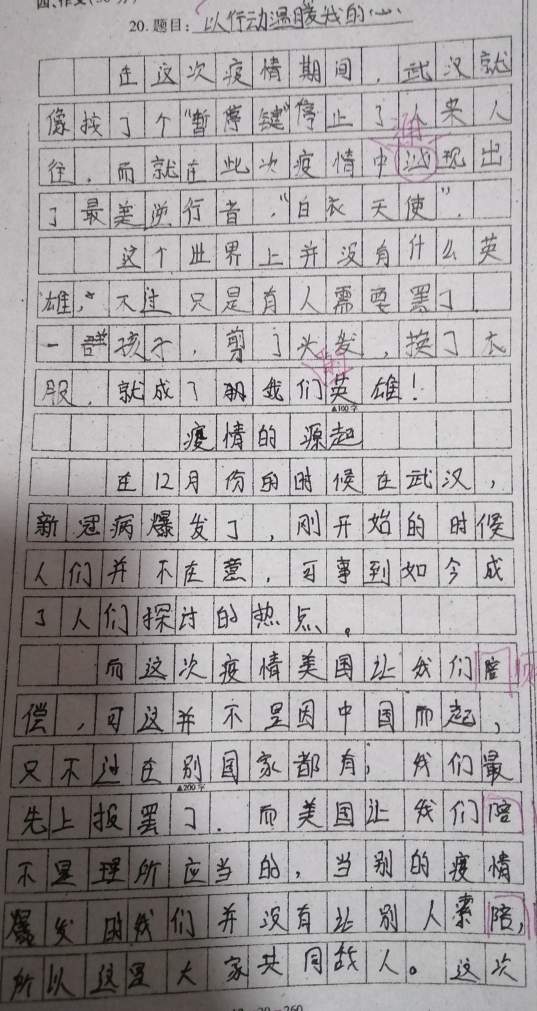 20. 题目: 以行动温暖我的心.
在这次疫情期间，武汉就
像按了个“暂停键”停止了人来人
往，而就在此次疫情中涌现出
了最美逆行者，“白衣天使”.
这个世界上并没有什么英
雄，不过只是有人需要罢了.
一群孩子，剪了头发，换了衣
服，就成了我们的英雄！
▲100字
疫情的源起
在12月份的时候在武汉，
新冠病爆发了，刚开始的时候
人们并不在意，可事到如今成
了人们探讨的热点。
而这次疫情美国让我们陪
偿，可这并不是因中国而起，
只不过在别国家都有，我们最
▲200字
先上报罢了.而美国让我们陪
不是理所应当的，当别的疫情
爆发时我们并没有让别人索陪，
所以这是大家共同敌人。这次